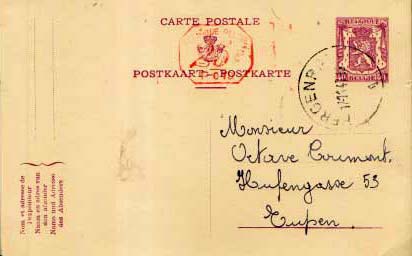 CARTE POSTALE
BELGIQUE
BELGIË
POSTKAART POSTKARTE
Monsieur
Octave Coumont.
Hufengasse 53
Eupen.
Nom et adresse de
l'expéditeur
Naam en adres van
den afzender
Name und Adresse
des Absenders